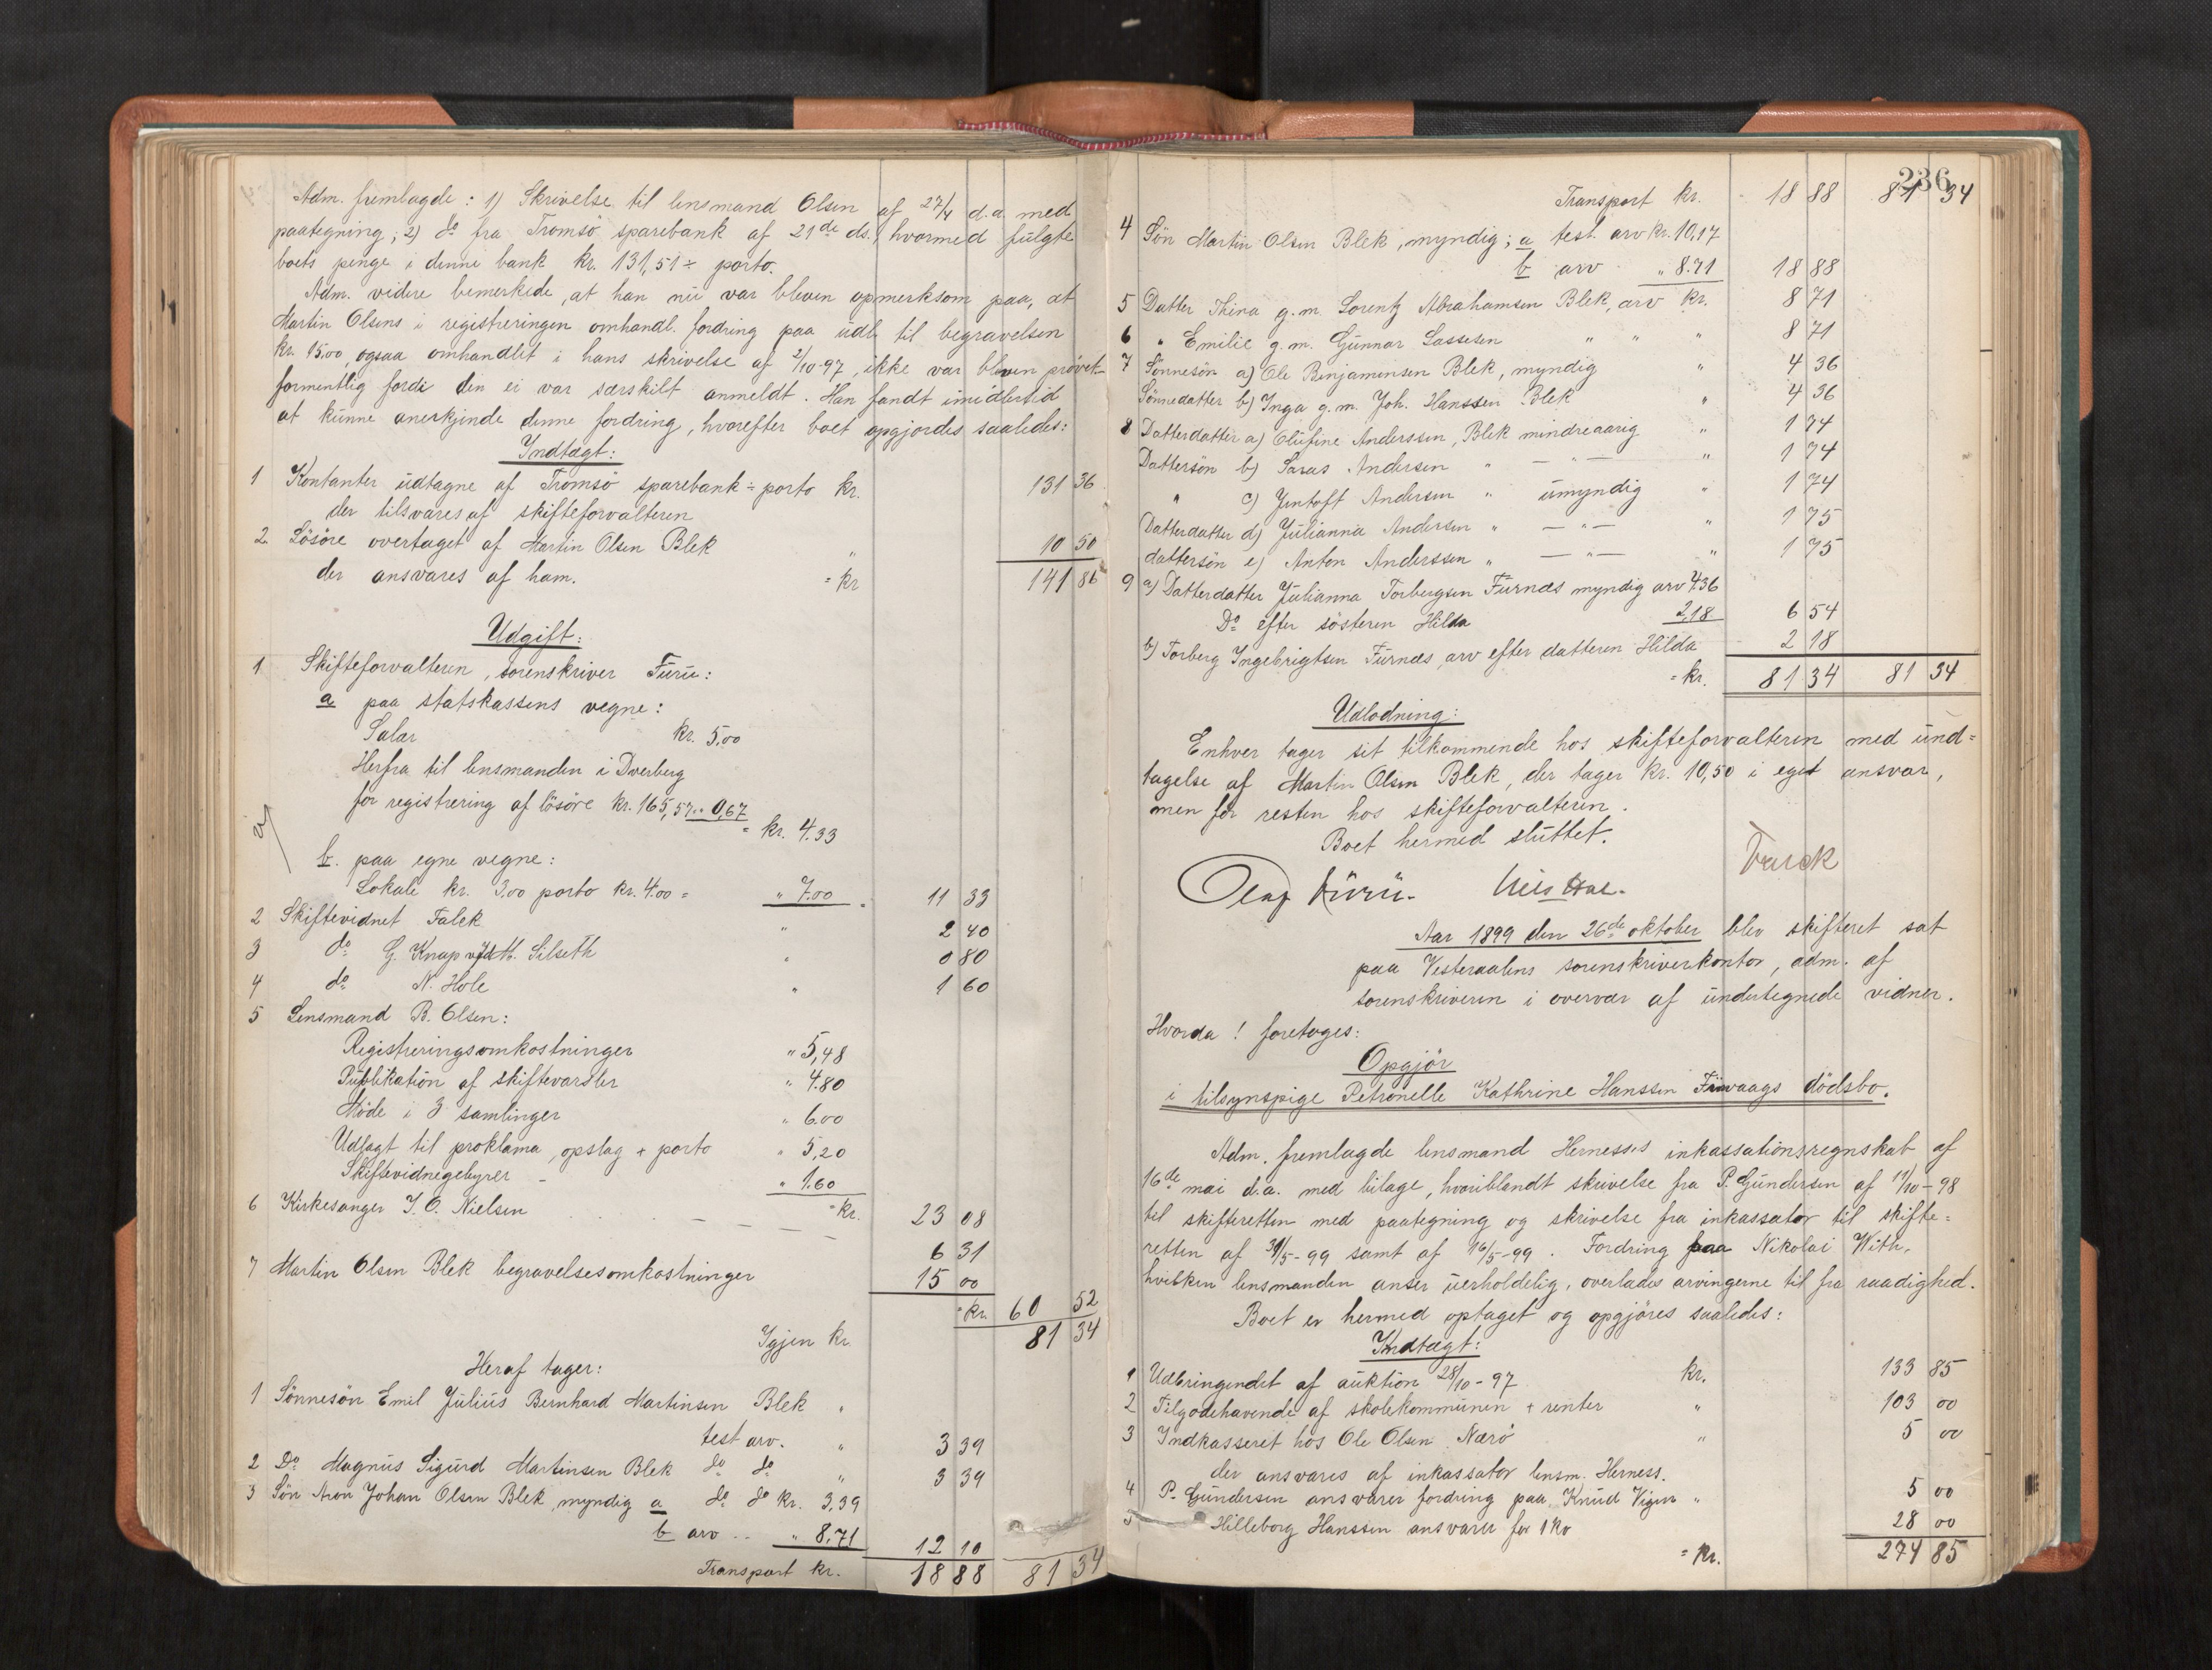 Adm. fremlagde: 1) Skrivelse til lensmand Olsen af 27/4 d.a. med
paategning; 2) do fra Tromsö sparebank af 21de ds., hvormed fulgte
boets penge i denne bank kr. 131,51 ÷ porto.
Adm. videre bemerkede, at han nu var bleven opmerksom paa, at
Martin Olsens i registreringen omhandl. fordring paa udl. til begravelsen
kr. 15,00, ogsaa omhandlet i hans skrivelse af 2/10-97, ikke var bleven prövet
formentlig fordi den ei var særskilt anmeldt. Han fandt imidlertid
at kunne anerkjende denne fordring, hvorefter boet opgjordes saaledes:
Indtægt:
1 Kontanter udtagne af Tromsö sparebank ÷ porto kr. 131 36
der tilsvares af skifteforvalteren
2 Lösöre overtaget af Martin Olsen Blek " 10 50
der ansvares af ham. = kr 141 86
Udgift:
1 Skifteforvalteren, sorenskriver Furu:
a paa statskassens vegne:
Salær kr. 5,00
Herfra til lensmanden i Dverberg
for registrering af lösöre kr. 165,57 .. 0,67
= kr. 4.33
b. paa egne vegne:
Lokale kr. 3.00 porto kr. 4.00 = " 7.00 = 11 33
2 Skiftevidnet Falck " 2 40
3 do G. Knap v/ M. Silseth " 0 80
4 do N. Hole " 1 60
5 Lensmand B. Olsen:
Registreringsomkostninger " 5,48
Publikation af skiftevarsler " 4.80
Möde i 3 samlinger " 6.00
Udlagt til proklama, opslag + porto " 5,20
Skiftevidnegebyrer " 1.60
= kr. 23 08
6 Kirkesanger I. O. Nielsen 6 31
7 Martin Olsen Blek begravelsesomkostninger 15 00
= kr. 60 52
Igjen kr. 81 34
Heraf tager:
1 Sönnesön Emil Julius Bernhard Martinsen Blek "
test arv. " 3 39
2 Do Magnus Sigurd Martinsen Blek do do " 3 39
3 Sön Aron Johan Olsen Blek, myndig a do do kr. 3,39
b arv .. " 8,71 12 10
Transport kr. 18 88 81 34
236
Transport kr. 18 88 81 34
4 Sön Martin Olsen Blek, myndig; a test. arv kr. 10,17
b arv " 8.71 18 88
5 Datter Thina g.m. Lorentz Abrahamsen Blek, arv kr. 8 71
6 " Emilie g.m. Gunnar Lassesen " " " 8 71
7 Sönnesön a) Ole Benjaminsen Blek, myndig " 4 36
Sönnedatter b) Inga g.m. Joh. Hanssen Blek " 4 36
8 Datterdatter a) Olufine Anderssen, Blek mindreaarig " 1 74
Dattersön b) Andersen " — " — " 1 74
" c) Jentoft Andersen " umyndig " 1 74
Datterdatter d) Julianna Andersen " — " — " 1 75
dattersön e) Anton Anderssen " — " — " 1 75
9 a) Datterdatter Julianna Torbergsen Furnæs myndig arv 4.36
Do efter sösteren Hilda 2,18 6 54
b) Torberg Ingebrigtsen Furnæs, arv efter datteren Hilda 2 18
= kr. 81 34 81 34
Udlodning:
Enhver tager sit tilkommende hos skifteforvalteren med und=
tagelse af Martin Olsen Blek, der tager kr. 10,50 i eget ansvar,
men for resten hos skifteforvalteren.
Boet hermed sluttet.
Olaf Furu. Nils Hole.
Aar 1899 den 26de oktober blev skifteret sat
paa Vesteraalens sorenskriverkontor, adm. af
sorenskriveren i overvær af undertegnede vidner.
Hvorda! foretoges:
Opgjör
i tilsynspige Petronelle Kathrine Hanssen Fiivaags dödsbo.
Adm. fremlagde lensmand Herness's inkassationsregnskab af
16de mai d.a. med bilage, hvoriblandt skrivelse fra P. Gundersen af 17/10-98
til skifteretten med paategning og skrivelse fra inkassator til skifte=
retten af 31/5-99 samt af 16/5-99. Fordring paa Nikolai With,
hvilken lensmanden anser uerholdelig, overlades arvingerne til fra raadighed.
Boet er hermed optaget og opgjöres saaledes:
Indtægt:
1 Udbringendet af auktion 28/10-97 kr. 133 85
2 Tilgodehavende af skolekommunen + renter " 103 00
3 Indkasseret hos Ole Olsen Nærö " 5 00
der ansvares af inkassator lensm. Herness.
4 P. Gundersen ansvarer fordring paa Knud Vigen " 5 00
5 Hilleborg Hanssen ansvarer for 1 ko 28 00
= kr. 274 85